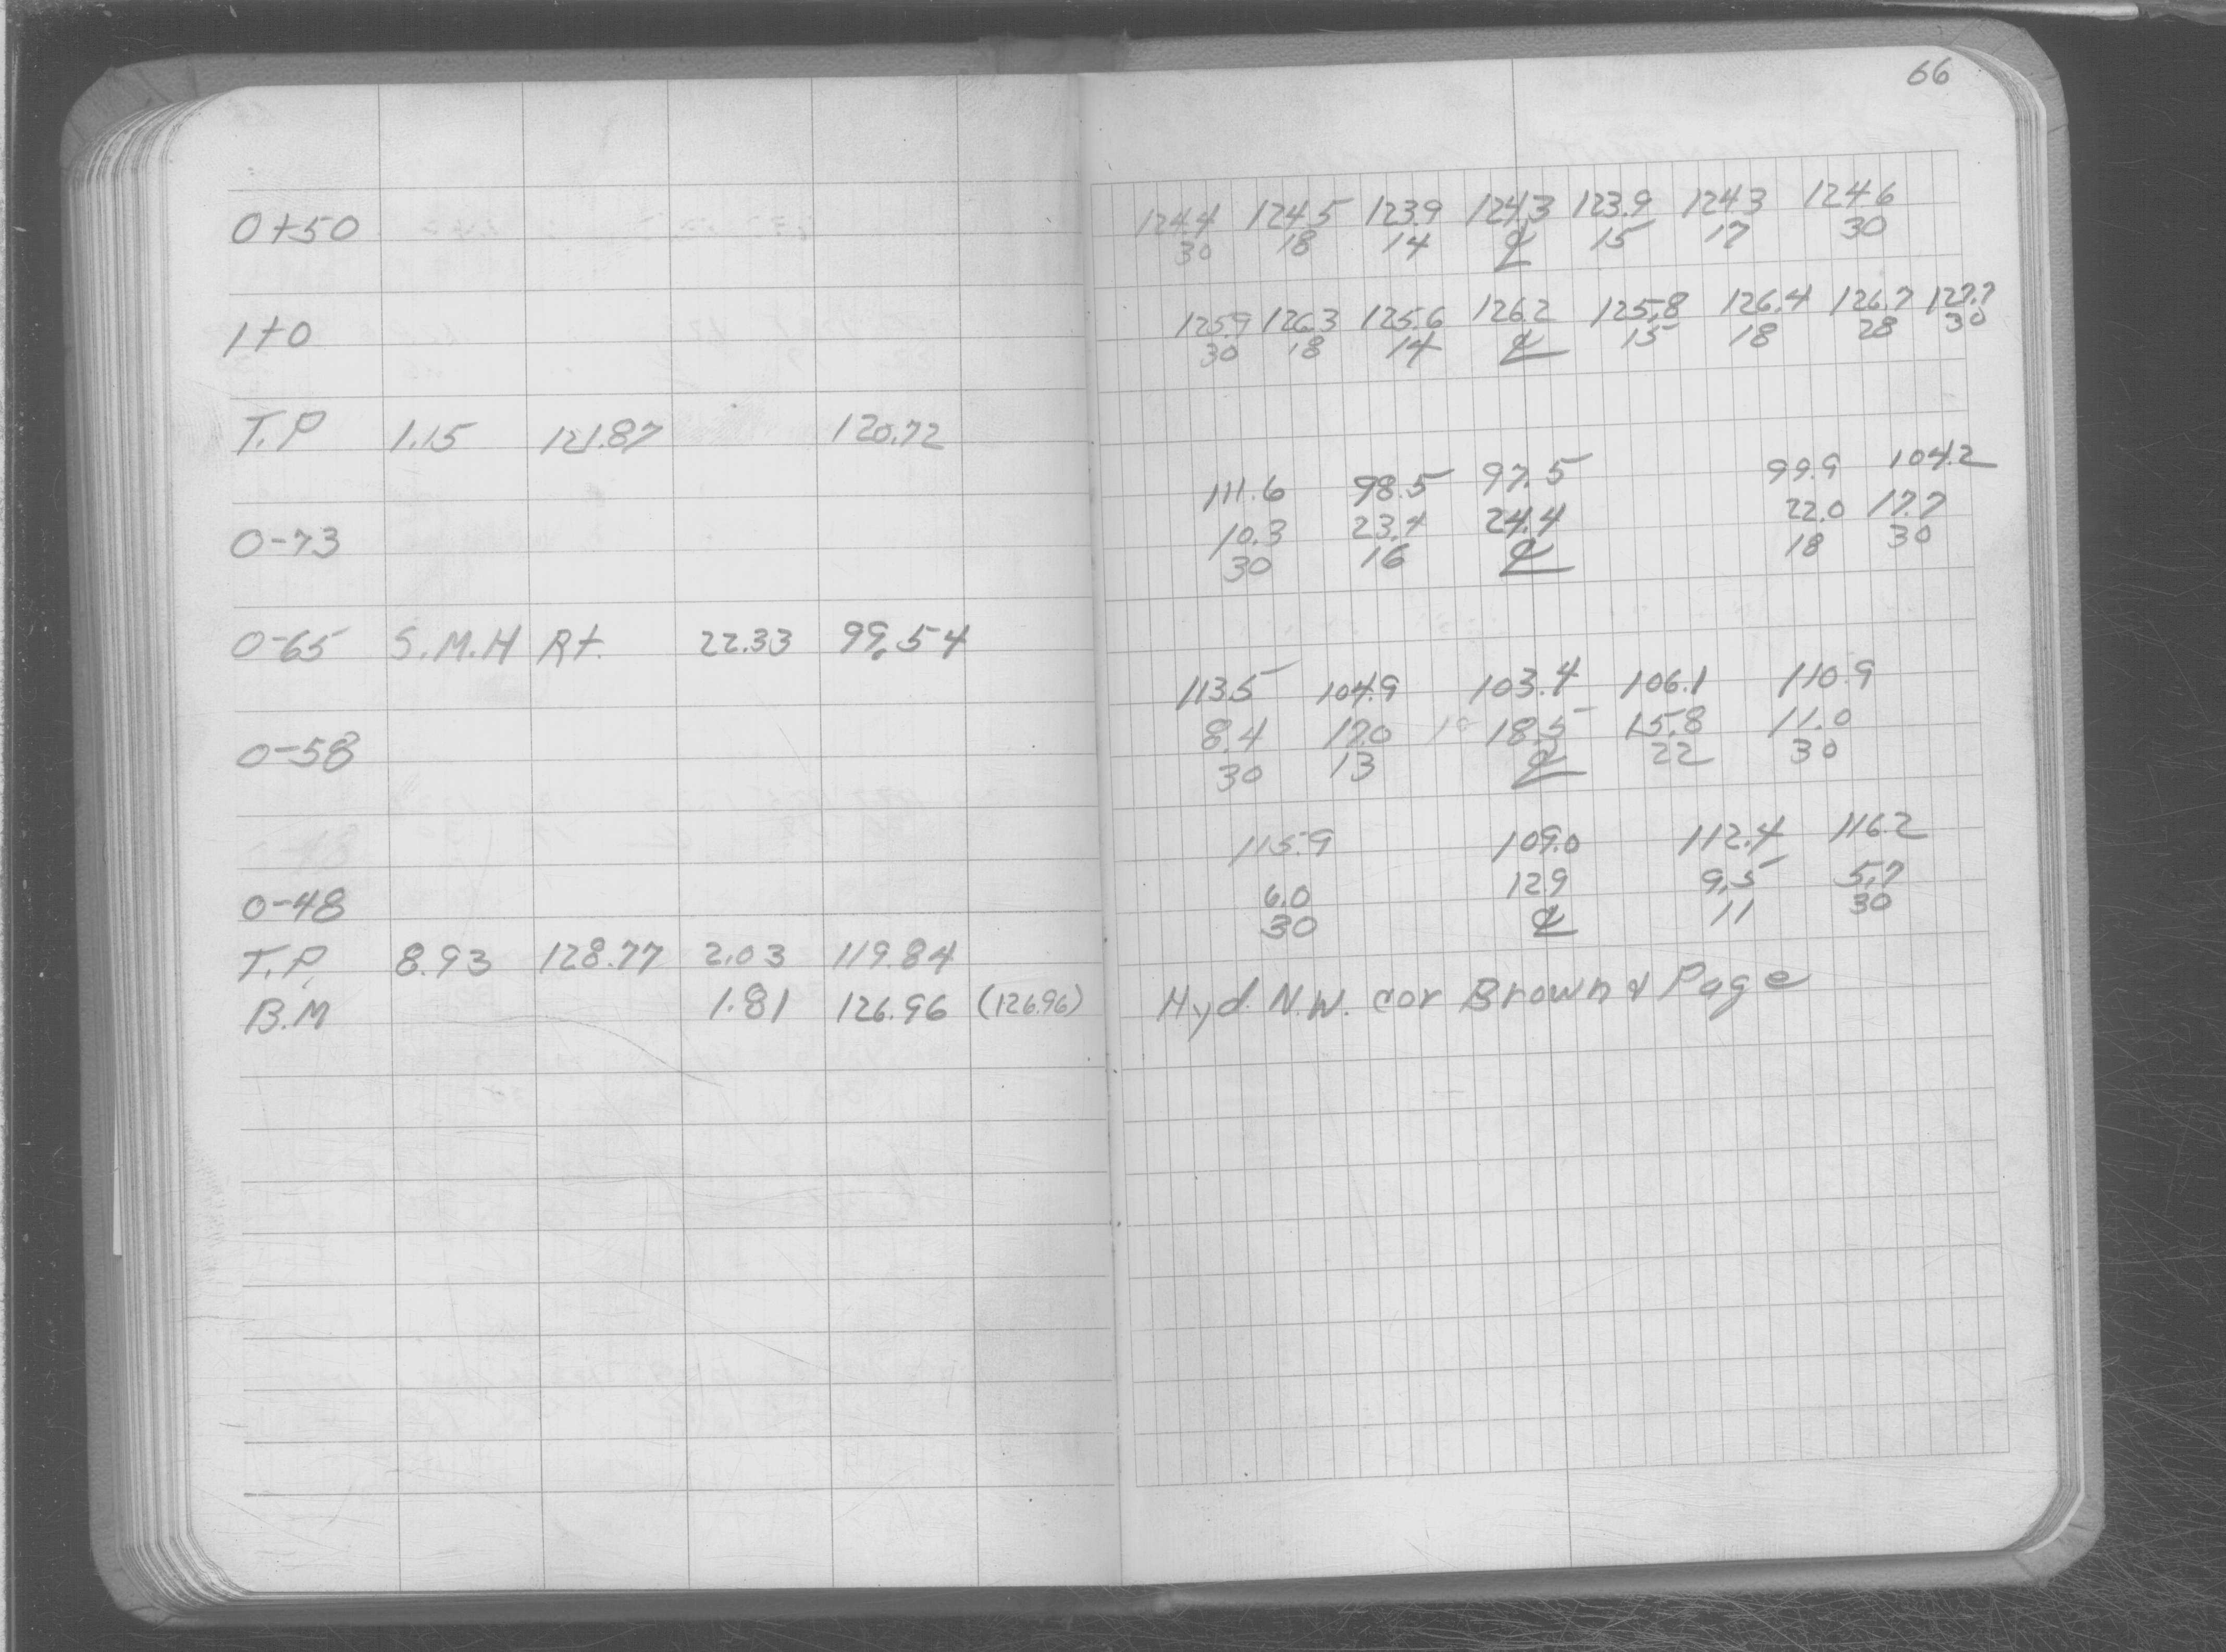 66
0+50 124.4 124.5 123.9 124.3 123.9 124.3 124.6
30 18 14 ℄ 15 17 30
1+0 125.9 126.3 125.6 126.2 125.8 126.4 126.7 127.7
30 18 14 ℄ 15 18 28 30
T.P 1.15 121.87 120.72
111.6 98.5 97.5 99.9 104.2
0-73 10.3 23.4 24.4 22.0 17.7
30 16 ℄ 18 30
0-65 S.M.H Rt. 22.33 99.54
113.5 104.9 103.4 106.1 110.9
0-58 8.4 17.0 18.5 15.8 11.0
30 13 ℄ 22 30
115.9 109.0 112.4 116.2
0-48 6.0 12.9 9.5 5.7
30 ℄ 11 30
T.P. 8.93 128.77 2.03 119.84
B.M 1.81 126.96 (126.96) Hyd. N.W. cor Brown & Page